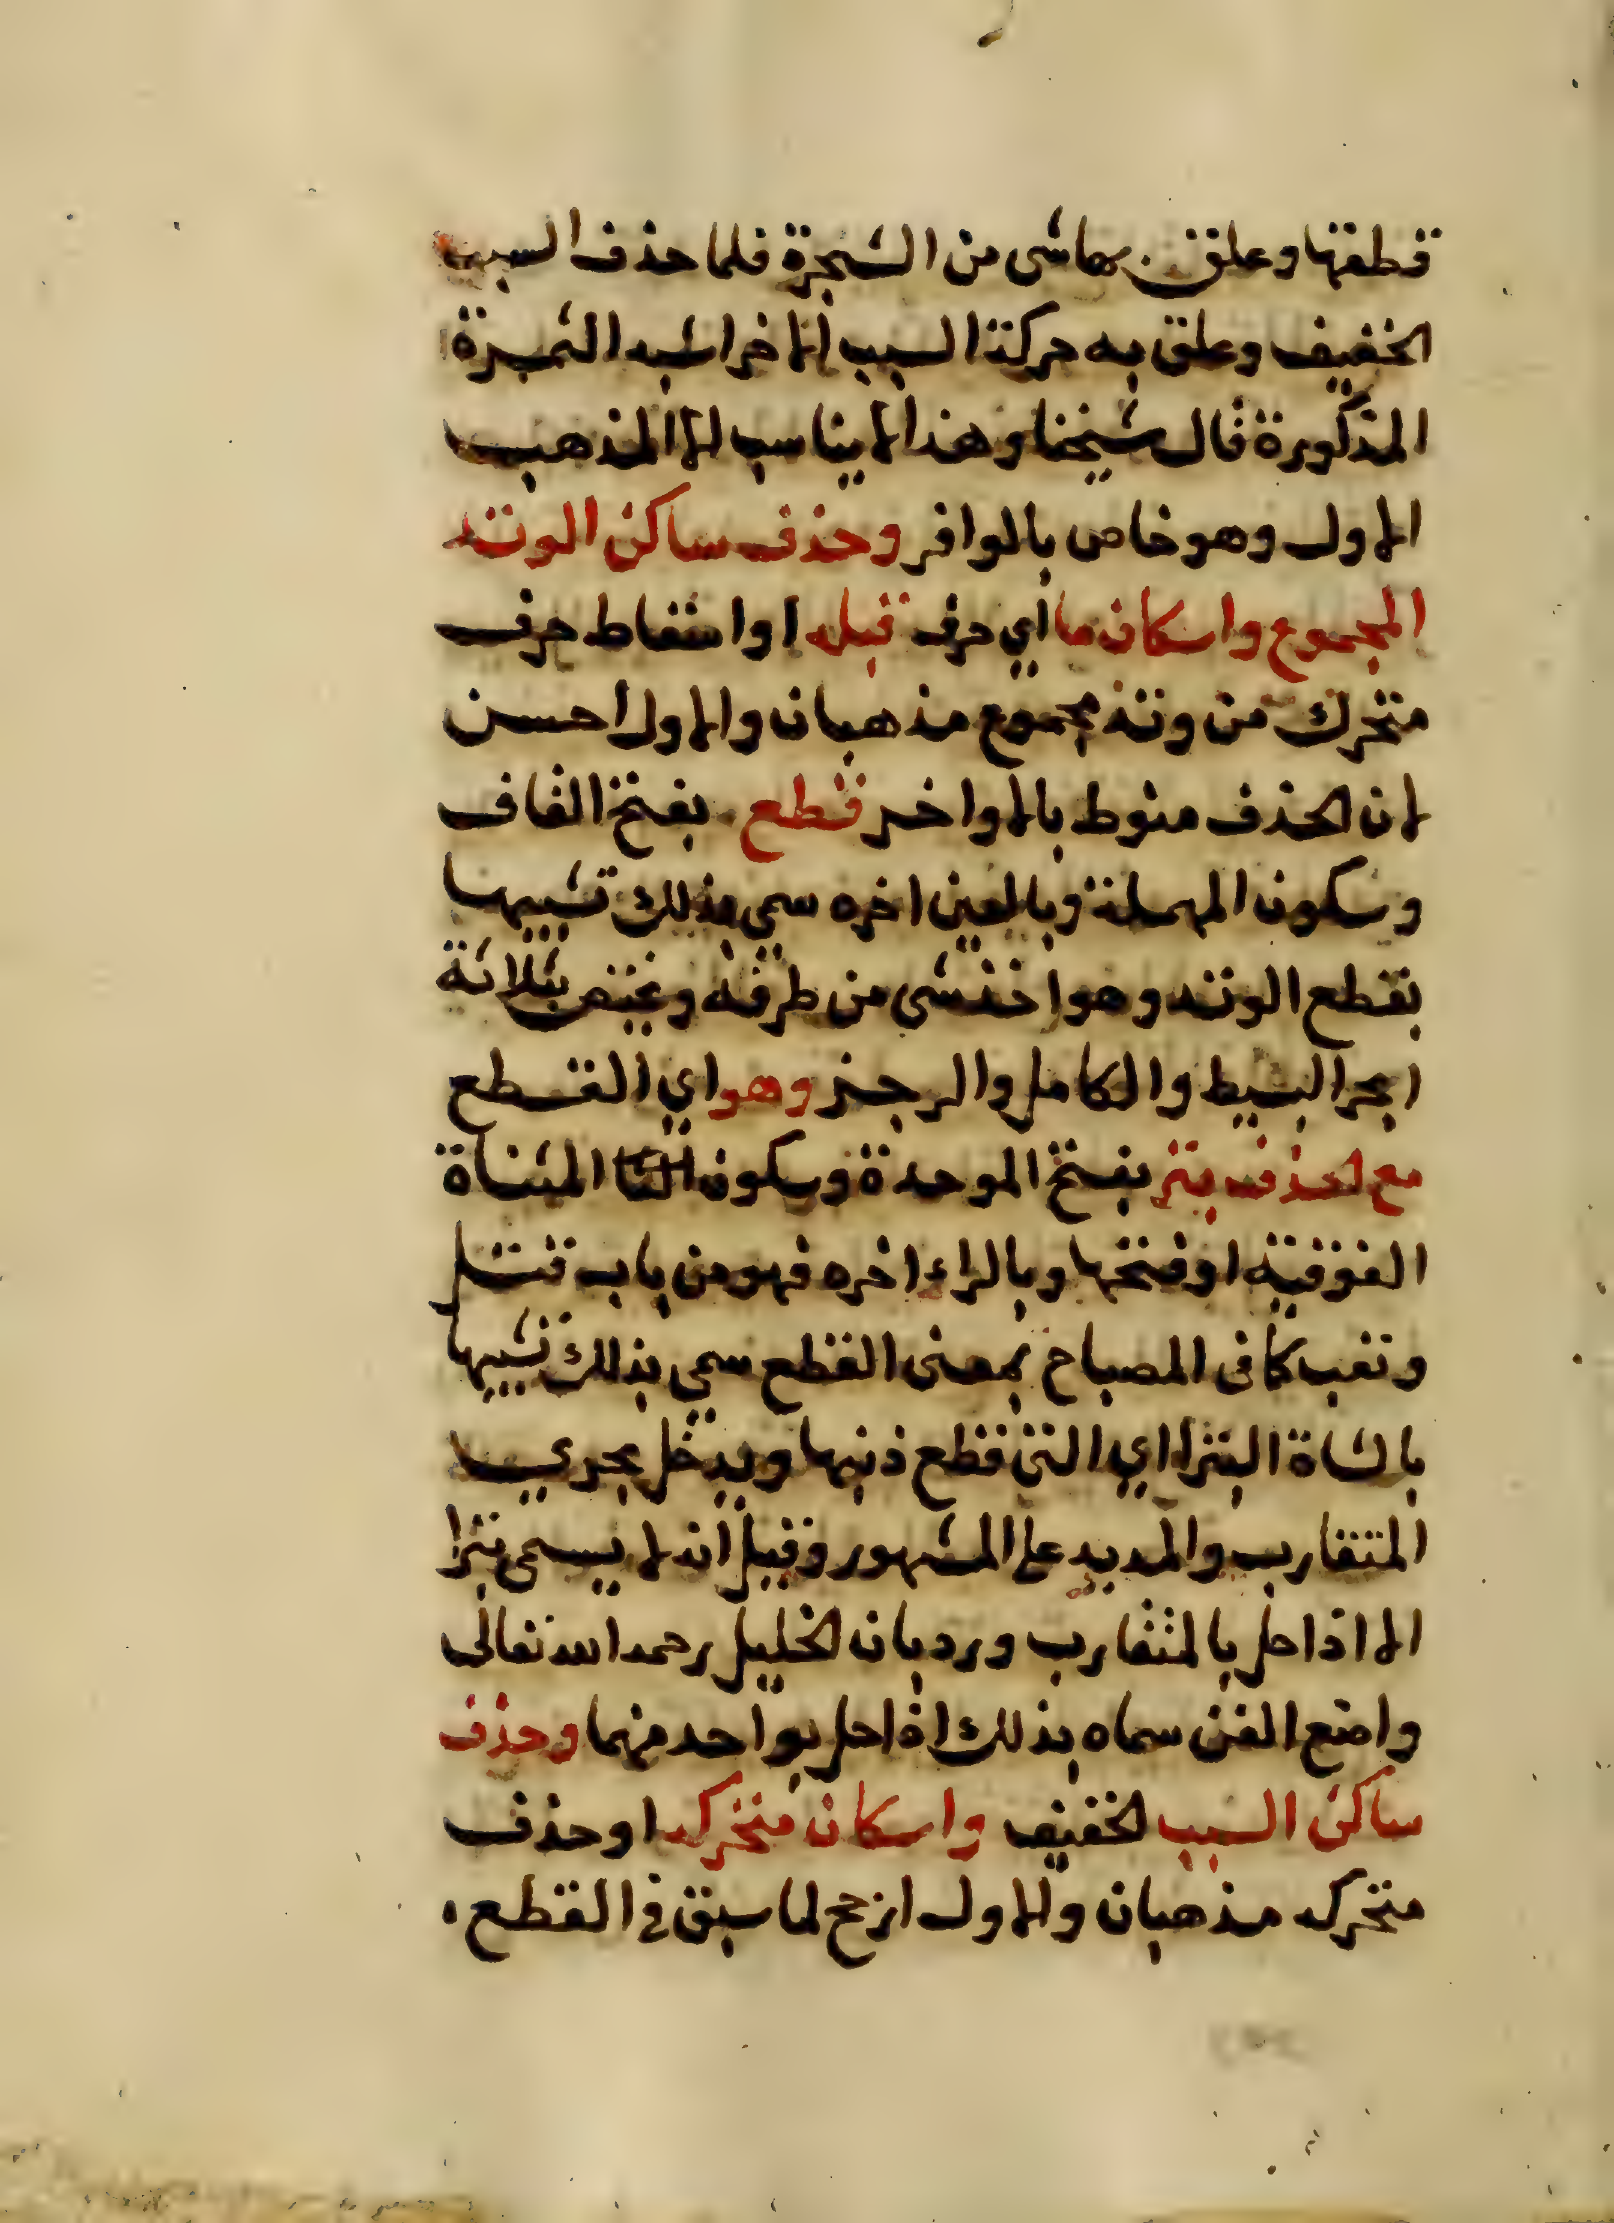 قطفتها وعلق بها شي من الشجرة فلما حذف السبب
الخفيف وعلق به حركة السبب الاخر اشبه الثمرة
المذكورة قال شيخنا وهذا لا يناسب الا المذهب
الاول وهو خاص بالوافر وحذف ساكن الوتد
المجموع واسكان ما اي حرف قبله او اسقاط حرف
متحرك من وتد مجموع مذهبان والاول احسن
لان الحذف منوط بالاواخر قطع بفتح القاف
وسكون المهملة وبالعين اخره سمي بذلك تشبيها
بقطع الوتد وهو اخذ شي من طرفه ويختص بثلاثة
ابحر البسيط والكامل والرجز وهو اي القطع
مع الحذف بتر بفتح الموحدة وسكون التا المثناة
الفوقية او فتحها وبالراء اخره فهو من باب قتل
وتعب كما في المصباح بمعنى القطع سمي بذلك تشبيها
بالشاة البترا اي التي قطع ذنبها ويدخل بحري
المتقارب والمديد على المشهور وقيل انه لا يسمى بترا
الا اذا حل بالمتقارب ورد بان الخليل رحمه الله تعالى
واضع الفن سماه بذلك اذا حل بواحد منهما وحذف
ساكن السبب الخفيف واسكان متحركه او حذف
متحركه مذهبان والاول ارجح لما سبق في القطع